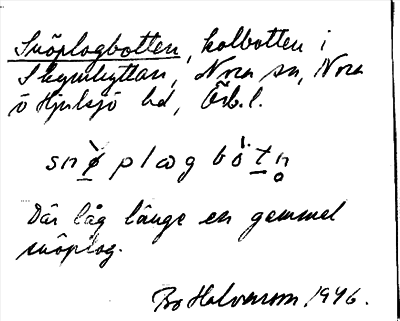 Snöplogbotten, kolbotten i
Skrikarhyttan, Nora sn, Nora
o Hjulsjö hd, Örb. l.
snø̀plωgbòtn̥
Där låg länge en gammal
snöplog.
Bo Halvarsson, 1946.